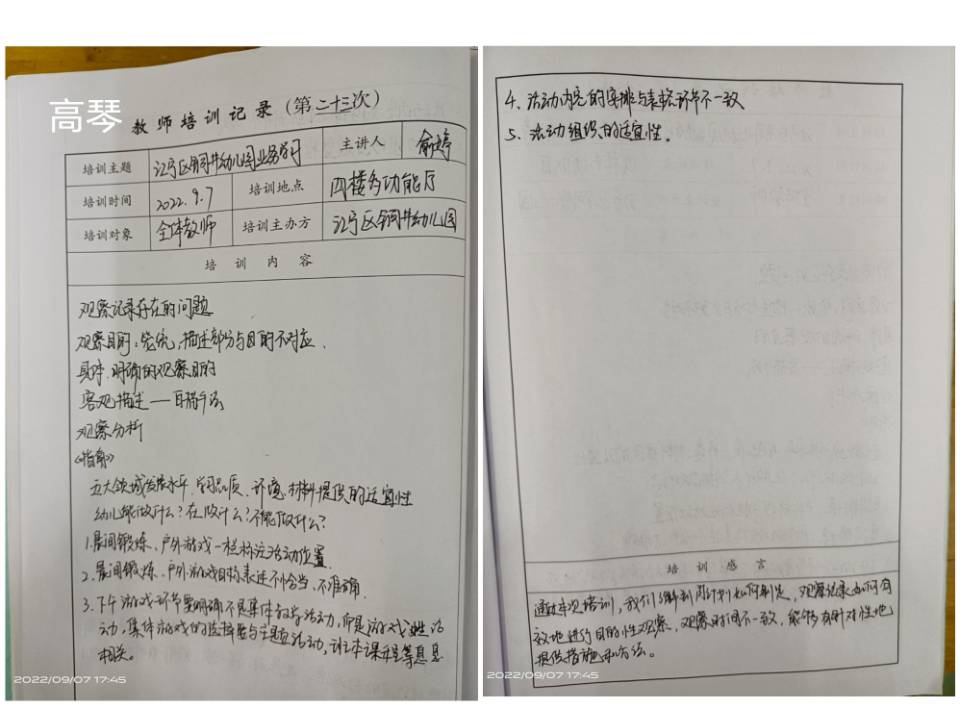 高琴
教师培训记录（第二十三次）
培训主题 江宁区铜井幼儿园业务学习 主讲人 俞婷
培训时间 2022.9.7 培训地点 四楼多功能厅
培训对象 全体教师 培训主办方 江宁区铜井幼儿园
培训内容
观察记录存在的问题
观察目的：笼统，描述部分与目的不对应．
具体、明确的观察目的
客观描述——白描手法
观察分析
《指南》
五大领域发展水平、学习品质、环境、材料提供的适宜性
幼儿能做什么？在做什么？不能做什么？
1.晨间锻炼、户外游戏一栏标注活动位置．
2.晨间锻炼、户外游戏目标表述不恰当、不准确．
3.下午游戏环节要明确不是集体教学活动，而是游戏活
动，集体游戏的选择要与主题活动、班本课程等息息
相关。
2022/09/07 17:45
4.活动内容的安排与表格环节不一致
5.活动组织的适宜性。
培训感言
通过本次培训，我们了解到周计划如何制定，观察记录如何有
效地进行目的性观察，观察时间不一致，能够有针对性地
提供措施和方法。
2022/09/07 17:45